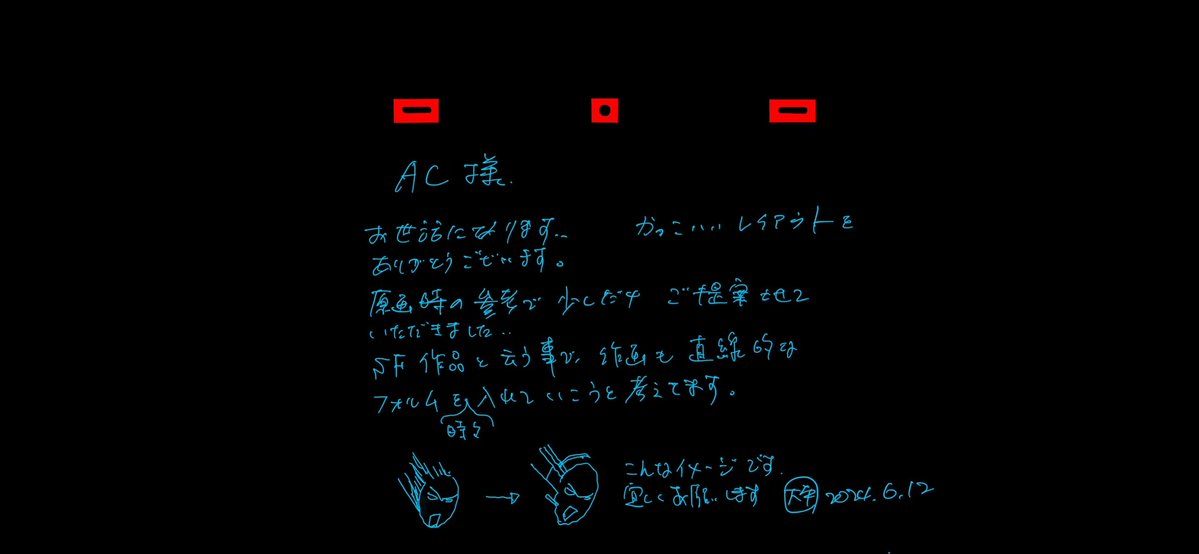 AC 様.
お世話になります.. かっこいい レイアウトを
ありがとうございます。
原画時の参考で 少しだけ ご提案させて
いただきました..
SF 作品と云う事で、作画も 直線的な
フォルムを入れていこうと考えてます。
時々
こんなイメージです.
宜しくお願いします 2024.6.12